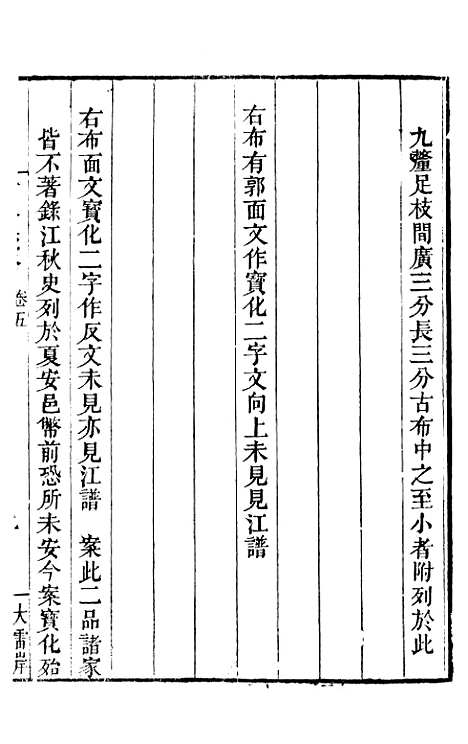 九釐足枝間廣三分長三分古布中之至小者附列於此
右布有郭面文作寶化二字文向上未見見江譜
右布面文寶化二字作反文未見亦見江譜　案此二品諸家
皆不著錄江秋史列於夏安邑幣前恐所未安今案寶化殆
卷五
大雷岸